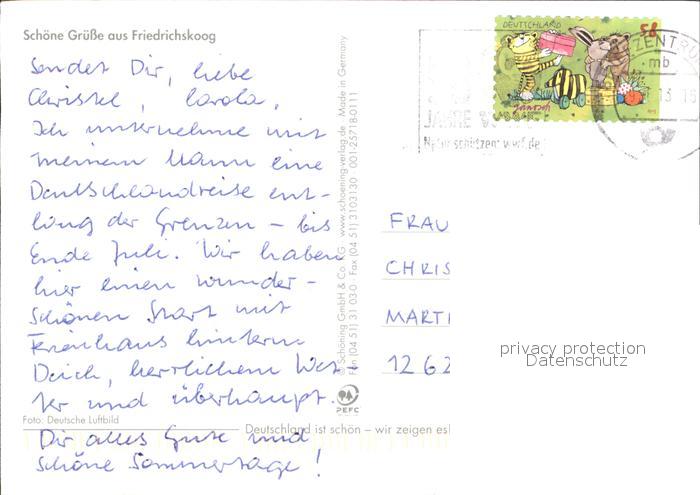 Schöne Grüße aus Friedrichskoog
Sendet Dir, liebe
Christel, Carola.
Ich unternehme mit
meinem Mann eine
Deutschlandreise ent-
lang der Grenzen – bis
Ende Juli. Wir haben
hier einen wunder-
schönen Start mit
Ferienhaus hinterm
Deich, herrlichem Wet-
ter und überhaupt.
Foto: Deutsche Luftbild
Dir alles Gute und
schöne Sommertage!
Deutschland ist schön – wir zeigen es
© Schöning GmbH & Co. KG · www.schoening-verlag.de · Made in Germany
Fon (04 51) 31 03-0 · Fax (04 51) 3103130 · 001-25718-0111
PEFC
DEUTSCHLAND
58
Janosch
ZENTRUM
mb
JAHRE
Natur schützen: wwf.de
FRAU
CHRIS
MARTI
1262
privacy protection
Datenschutz